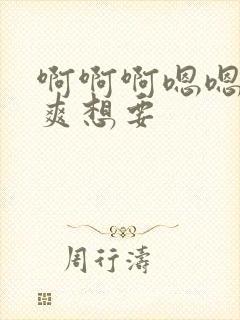 啊啊啊嗯嗯
爽想要
周行濤